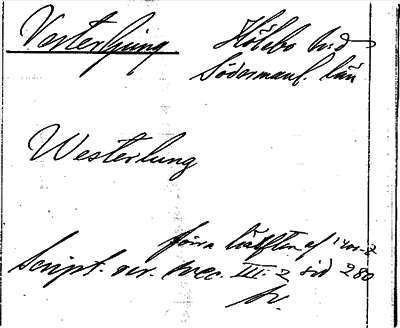 Vesterljung
Hölebo hd
Södermanl. län
Westerlung
förra hälften af 1400-t
Script. rer. svec. III: 2 sid 280